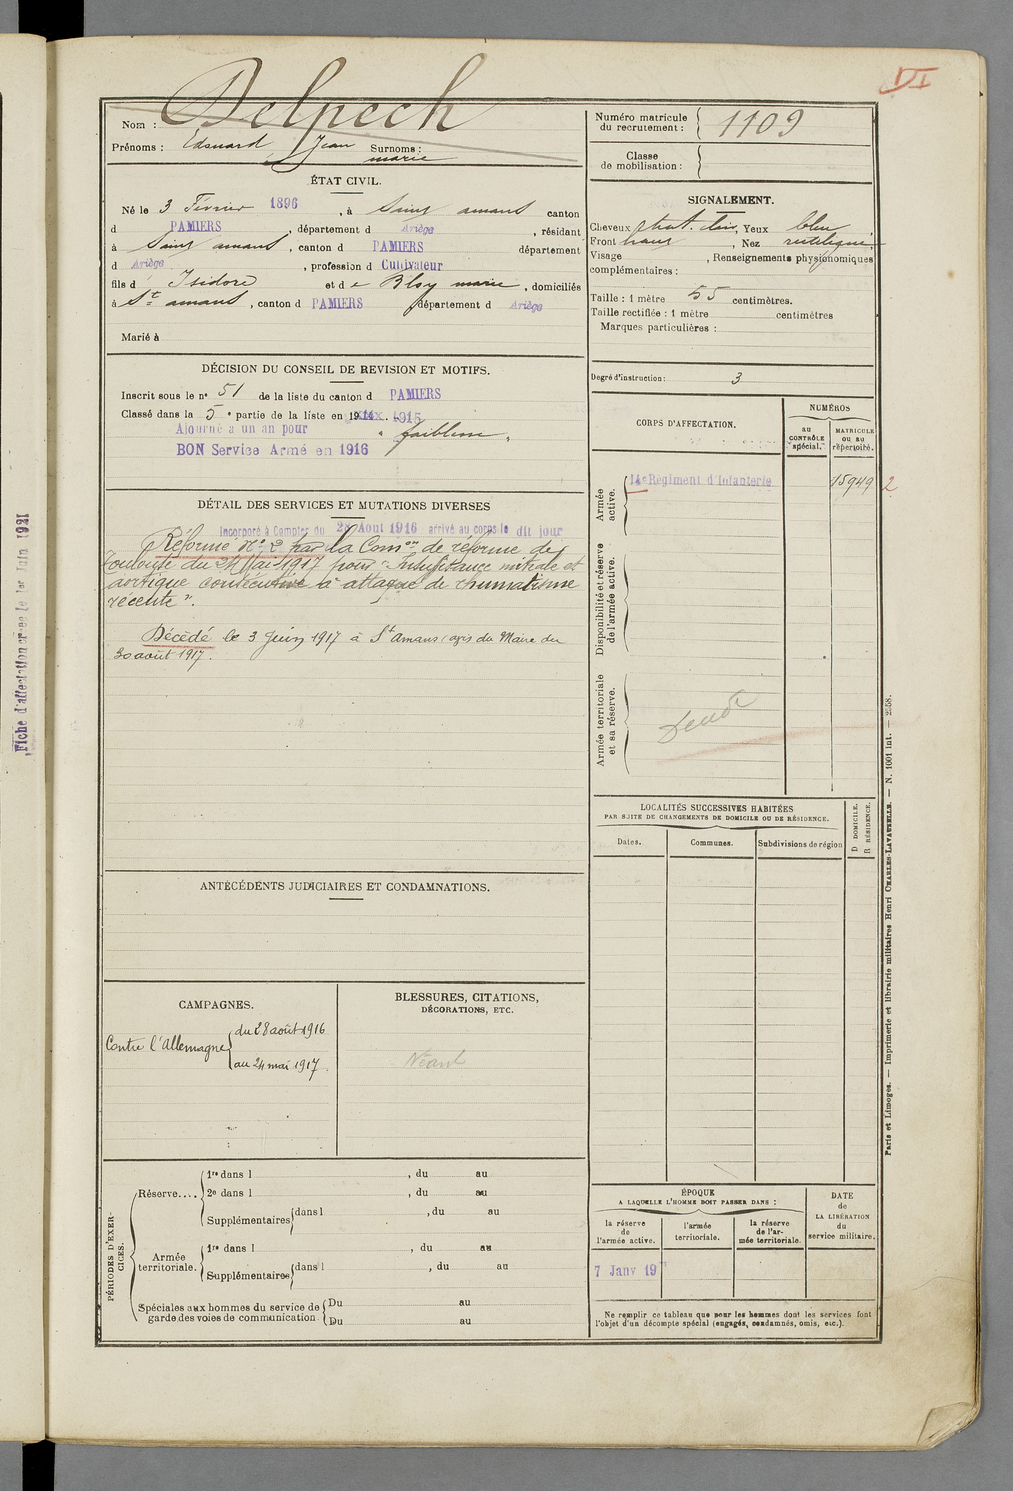 VI
Delpech
Nom :
Prénoms : Edouard Jean Surnoms :
marie
Numéro matricule
du recrutement : 1109
Classe
de mobilisation :
ÉTAT CIVIL.
Né le 3 Février 1896, à Saint amans canton
d PAMIERS, département d Ariège, résidant
à Saint amans, canton d PAMIERS département
d Ariège, profession d Cultivateur
fils d' Isidore et de Bloy marie, domiciliés
à St amans, canton d PAMIERS département d Ariège
Marié à
SIGNALEMENT.
Cheveux chat. clair, Yeux bleu,
Front haut, Nez rectiligne,
Visage , Renseignements physionomiques
complémentaires :
Taille : 1 mètre 55 centimètres.
Taille rectifiée : 1 mètre centimètres
Marques particulières :
Degré d'instruction : 3
DÉCISION DU CONSEIL DE REVISION ET MOTIFS.
Inscrit sous le n° 51 de la liste du canton d PAMIERS
Classé dans la 5e partie de la liste en 1915
Ajourné à un an pour " faiblesse "
BON Service Armé en 1916
DÉTAIL DES SERVICES ET MUTATIONS DIVERSES
Incorporé à Compter du 28 Aout 1916 arrivé au corps le dit jour
Réformé N° 2 par la Comon de réforme de
Toulouse du 24 Mai 1917 pour "Insuffisance mitrale et
aortique consécutive à attaque de rhumatisme
récente".
Décédé le 3 Juin 1917 à St Amans (avis du Maire du
30 août 1917.
CORPS D'AFFECTATION.
NUMÉROS
au
CONTRÔLE
spécial.
MATRICULE
ou au
répertoire.
Armée
active.
14e Régiment d'Infanterie
15949 2
Disponibilité et réserve
de l'armée active.
Armée territoriale
et sa réserve.
LOCALITÉS SUCCESSIVES HABITÉES
PAR SUITE DE CHANGEMENTS DE DOMICILE OU DE RÉSIDENCE.
Dates.
Communes.
Subdivisions de région
D DOMICILE.
R RÉSIDENCE.
ANTÉCÉDENTS JUDICIAIRES ET CONDAMNATIONS.
CAMPAGNES.
Contre l'Allemagne
du 28 août 1916
au 24 mai 1917.
BLESSURES, CITATIONS,
DÉCORATIONS, ETC.
Néant
PÉRIODES D'EXERCICES.
Réserve....
1re dans l , du au
2e dans l , du au
Supplémentaires dans l , du au
Armée
territoriale.
1re dans l , du au
Supplémentaires dans l , du au
Spéciales aux hommes du service de
garde des voies de communication.
Du au
Du au
ÉPOQUE
A LAQUELLE L'HOMME DOIT PASSER DANS :
la réserve
de
l'armée active.
l'armée
territoriale.
la réserve
de l'ar-
mée territoriale.
DATE
de
LA LIBÉRATION
du
service militaire.
7 Janv 19
Ne remplir ce tableau que pour les hommes dont les services font
l'objet d'un décompte spécial (engagés, condamnés, omis, etc.).
Paris et Limoges. — Imprimerie et librairie militaires Henri CHARLES-LAVAUZELLE. — N. 1001 int. — 2558.
Fiche d'affectation créée le 1er Juin 1921